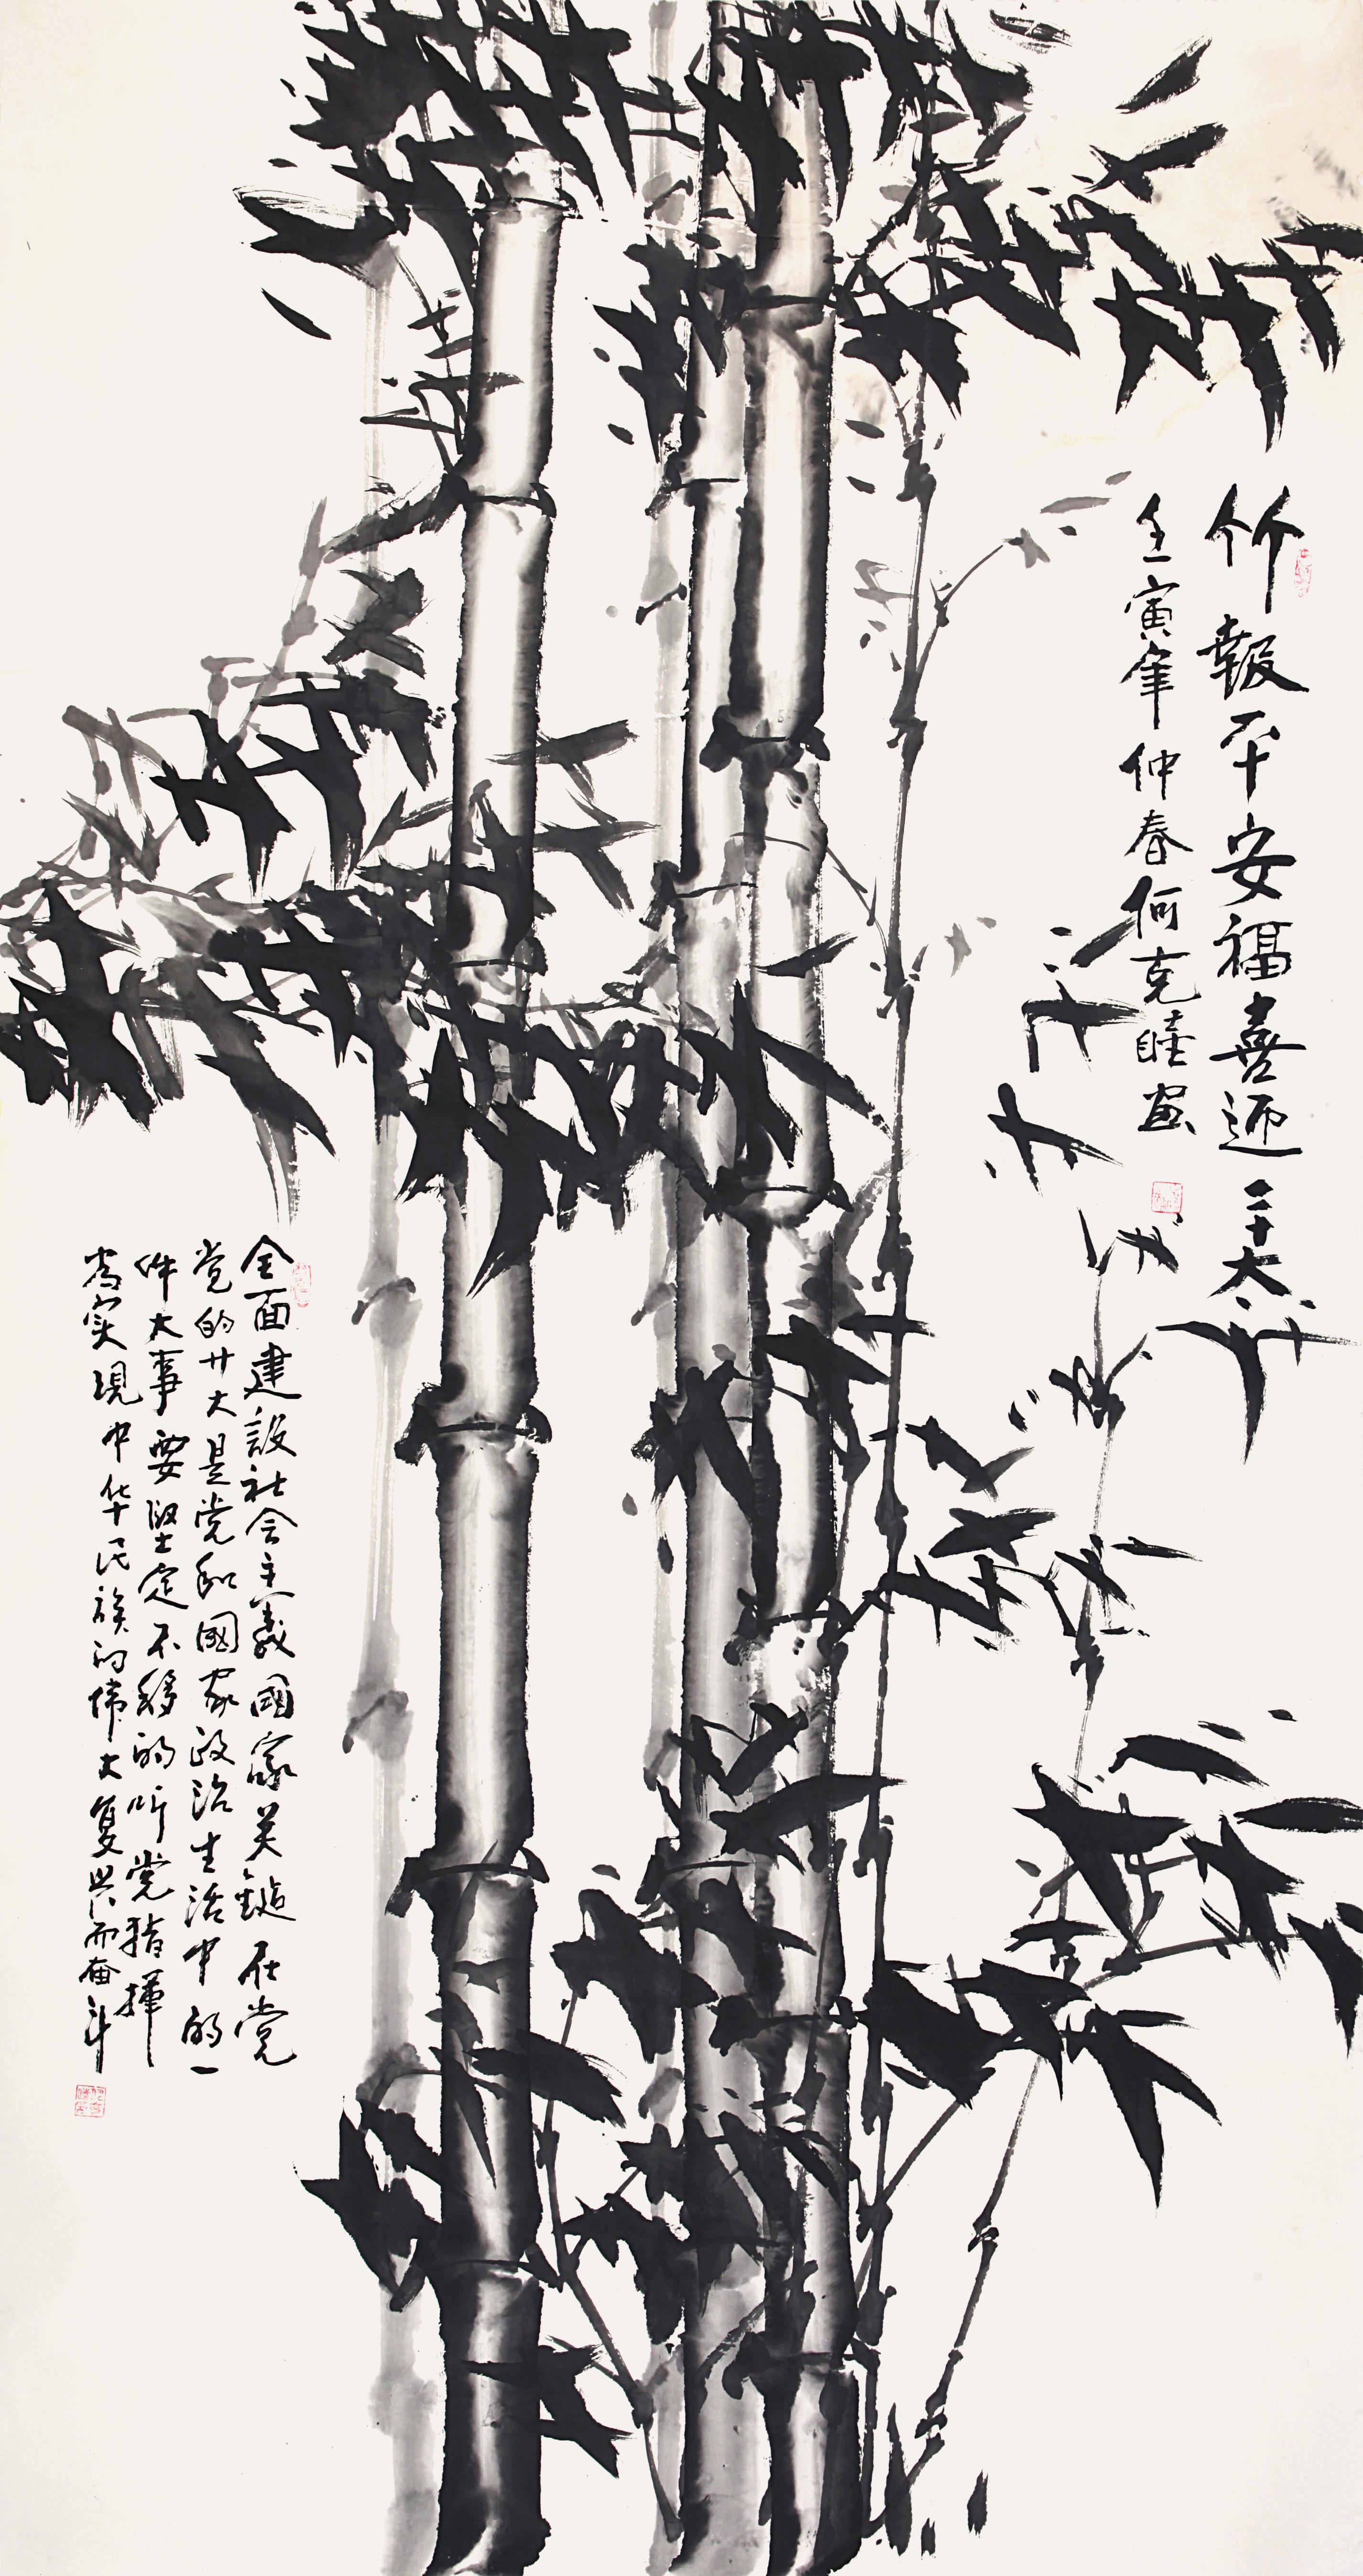 竹報平安福喜迎二十大
壬寅年仲春何克睦画
全面建設社会主義國家关鍵在党
党的廿大是党和國家政治生活中的一
件大事要堅定不移的听党指揮
为实現中华民族的偉大复兴而奋斗